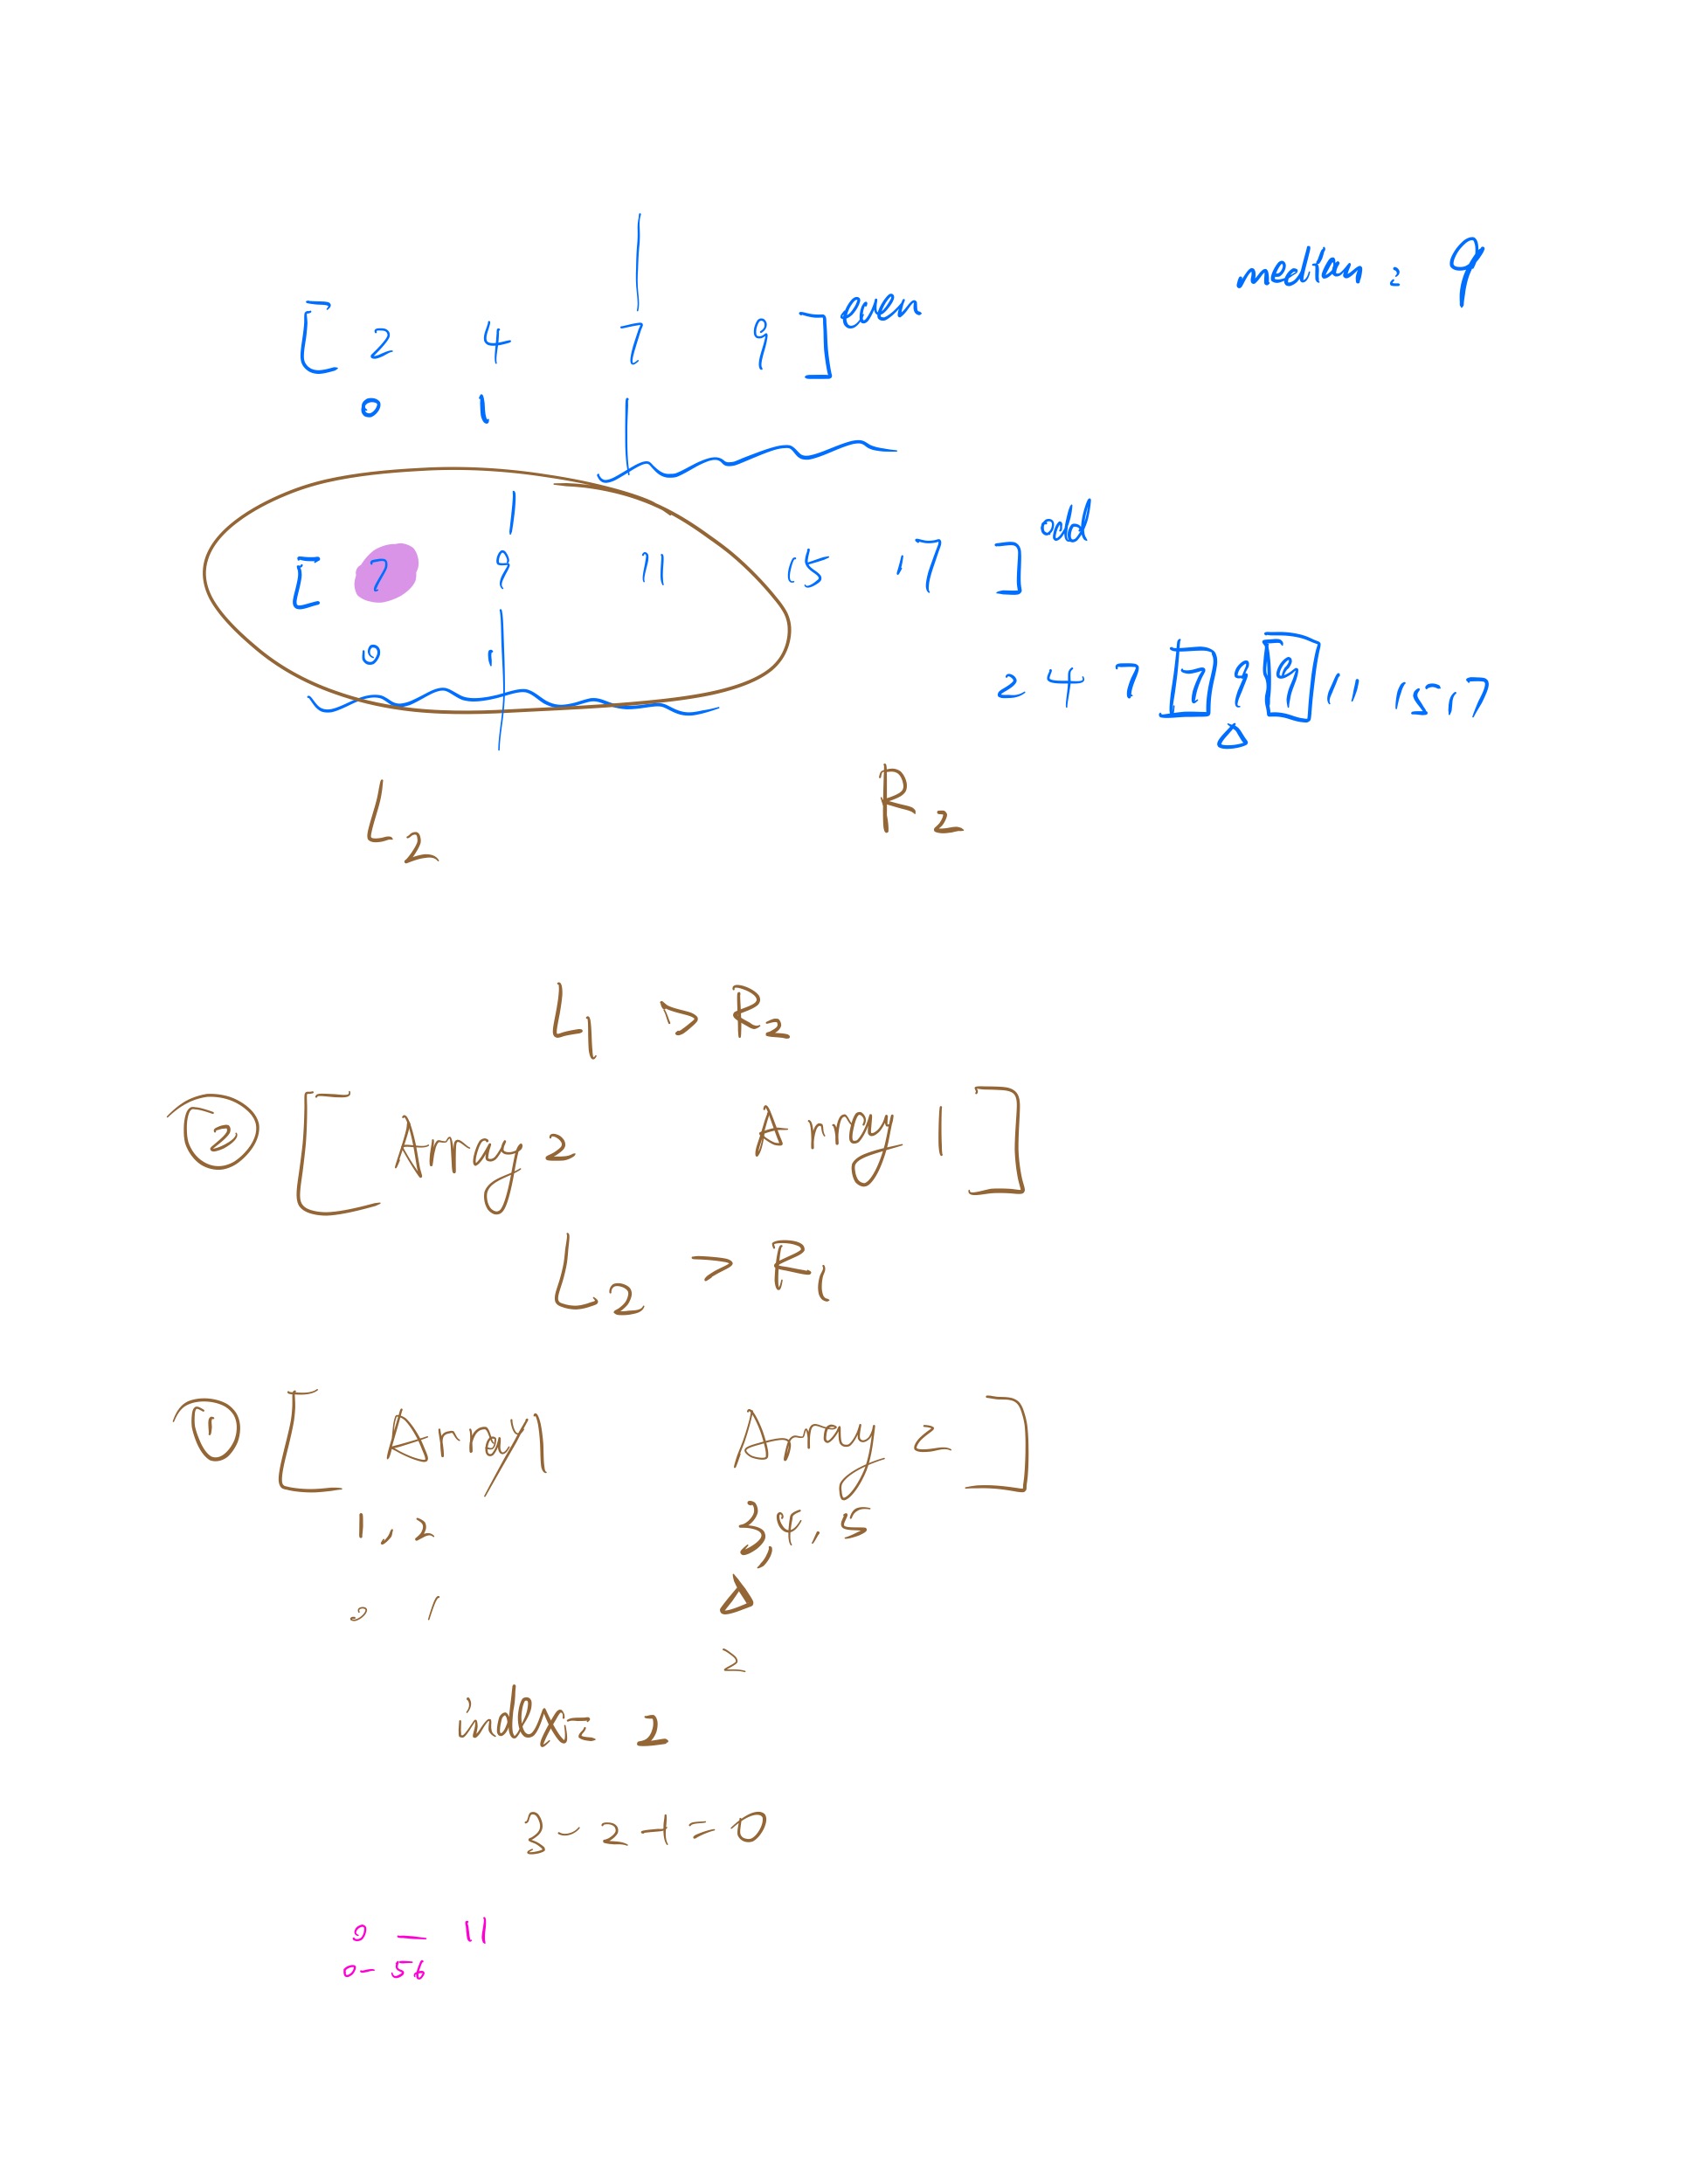 median : 9
[ 2 4 7 9 ] even
0 1
[ 7 9 11 15 17 ] odd
0 1
2 4 7 [7] 9 [9] 11 15 17
Δ
L2 R2
L1 > R2
② [ Array 2 Array 1 ]
L2 > R1
① [ Array 1 Array 2 ]
1, 2 3, 4, 5
0 1 Δ
2
index = 2
3 - 2 - 1 = 0
0 — 11
0 - 56